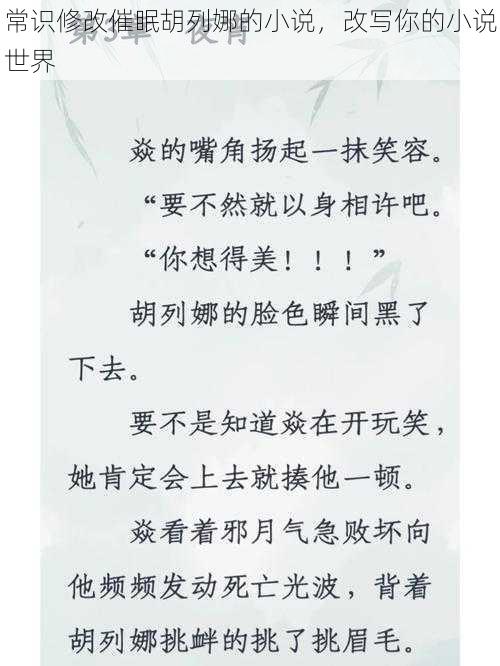 常识修改催眠胡列娜的小说，改写你的小说
世界
第3章 夜宵
焱的嘴角扬起一抹笑容。
“要不然就以身相许吧。
“你想得美！！！”
胡列娜的脸色瞬间黑了
下去。
要不是知道焱在开玩笑，
她肯定会上去就揍他一顿。
焱看着邪月气急败坏向
他频频发动死亡光波，背着
胡列娜挑衅的挑了挑眉毛。